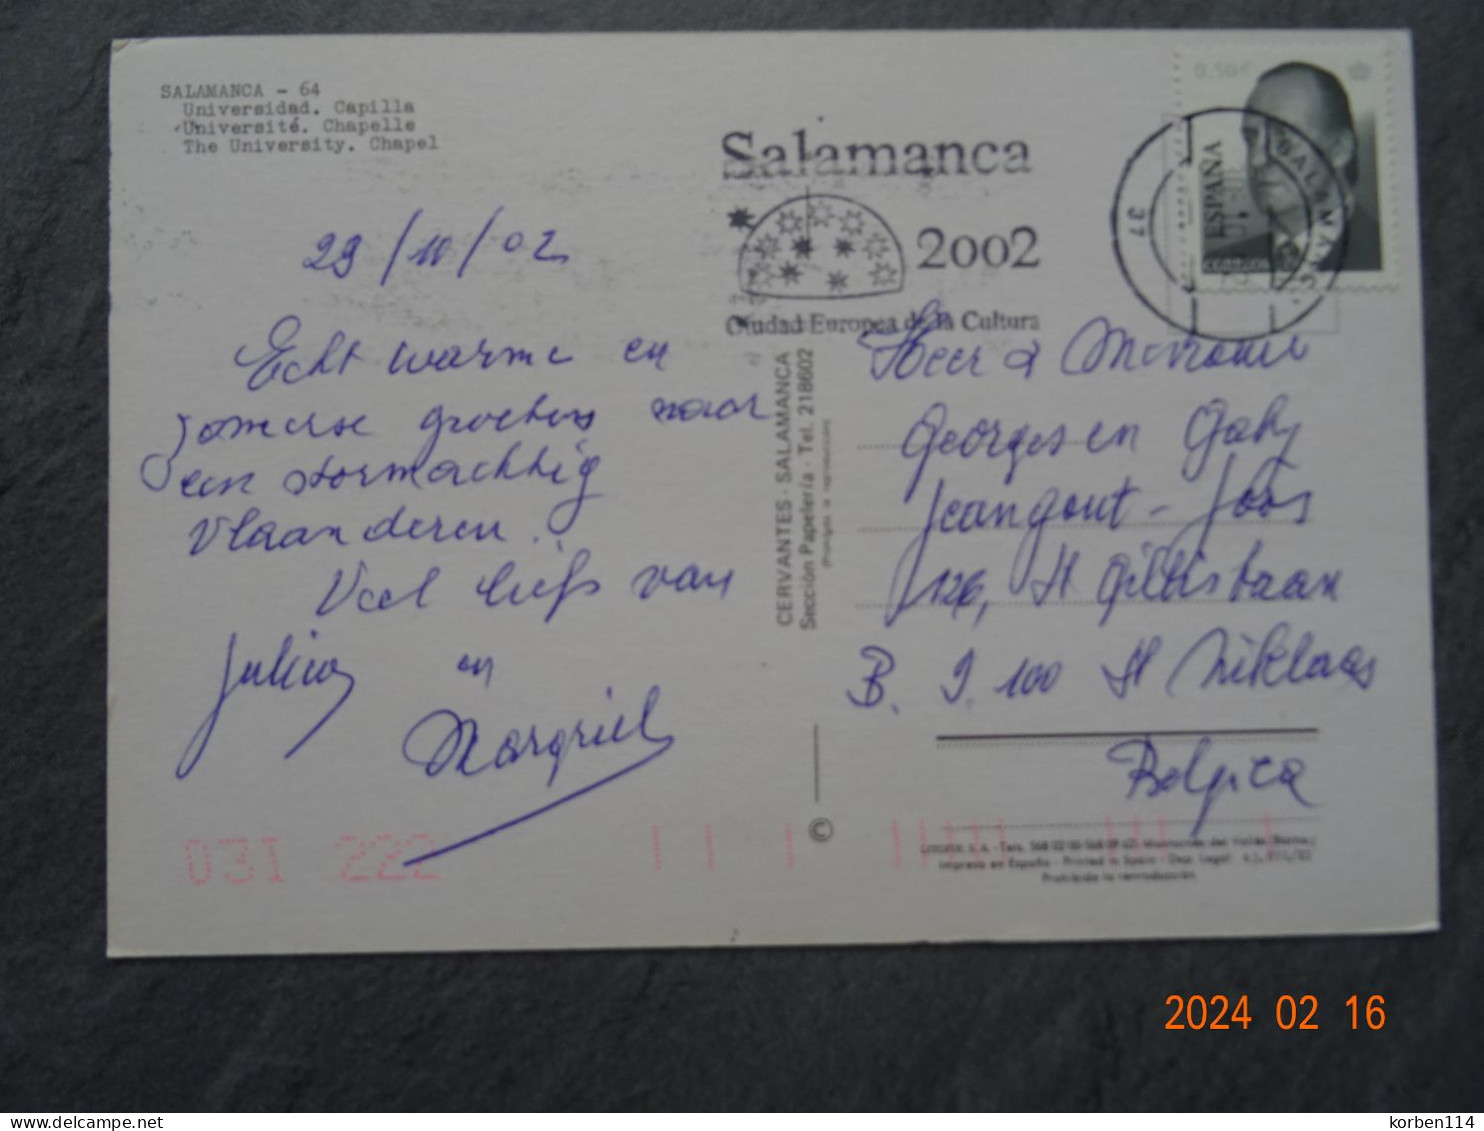 SALAMANCA - 64
Universidad. Capilla
Université. Chapelle
The University. Chapel
Salamanca
2002
Ciudad Europea de la Cultura
0,50€
ESPAÑA
CORREOS
SALAMANCA
37
29/10/02
Echt warme en
zomerse groeten naar
een stormachtig
Vlaanderen.
Veel liefs van
Julien en
Margriet
CERVANTES - SALAMANCA
Sección Papelería - Tel. 218602
(Prohibida la reproducción)
Heer & Mevrouw
Georges en Gaby
Jeangout - Joos
126, St Gillisbaan
B. 9.100 St Niklaas
Belgica
©
031 222
Impreso en España - Printed in Spain - Dep. Legal
Prohibida la reproducción
2024 02 16
korben114